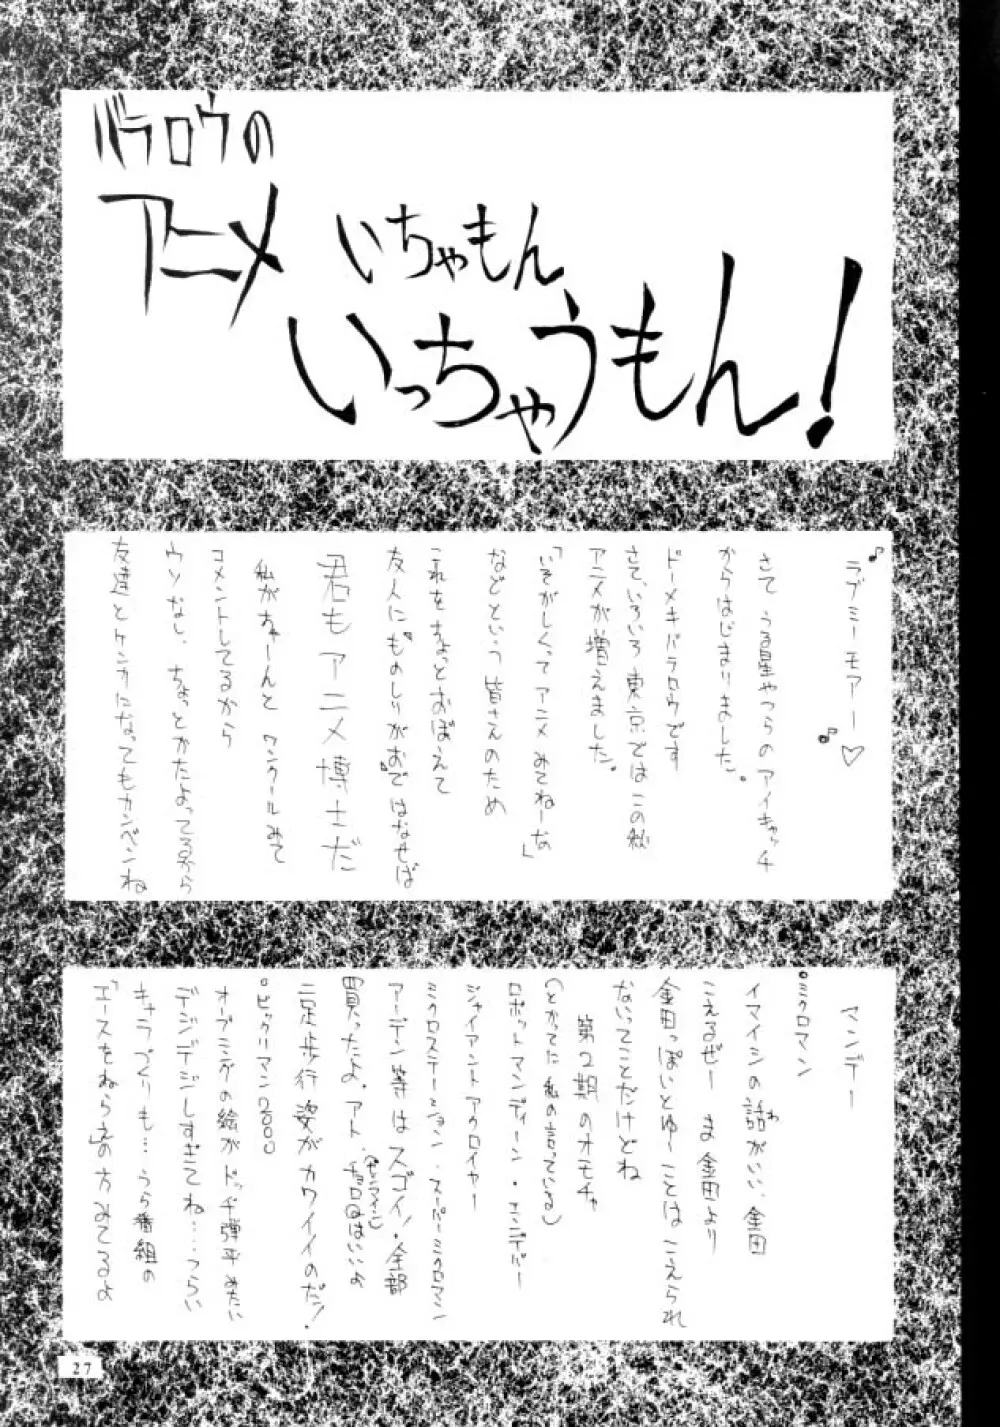 バラロウの
アニメ
いちゃもん
いっちゃうもん!
♪ラブミーモアー♪♡
さて うる星やつらのアイキャッチ
からはじまりました。
ドーメキバラロウです
さて、いろいろ東京ではこの秋
アニメが増えました。
「いそがしくってアニメみてねーな」
などという皆さんのため
これをちょっとおぼえて
友人に"ものしりがおで"はなせば
君もアニメ博士だ
私がちゃーんと ワンクールみて
コメントしてるから
ウソなし、ちょっとかたよってるから
友達とケンカになってもカンベンね
マンデー
°ミクロマン
イマイシの話がいい、金田
こえるぜー ま 金田より
金田っぽいとゆーことは こえられ
ないってことだけどね
第2期のオモチャ
(とかってに私の言っている)
ロボットマンディーン・エンデバー
ジャイアントアクロイヤー
ミクロステーション・スーパーミクロマン
アーデン等はスゴイ!全部
買ったよ。アト、チョロQはいいよ
二足歩行姿がカワイイのだ!
°ビックリマン2000
オープニングの絵がドッヂ弾平みたい
デジデジしすぎてね…つらい
キャラづくりも…うら番組の
「エースをねらえ」の方みてるよ
27